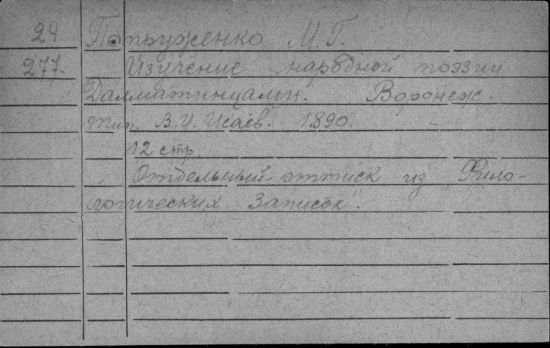 29 Попруженко М. Г.
277. Изучение народной поэзии
Далматинцами. Воронеж.
тип. В. И. Исаев. 1890.
12 стр.
Отдельный оттиск из "Фило-
логических Записок".